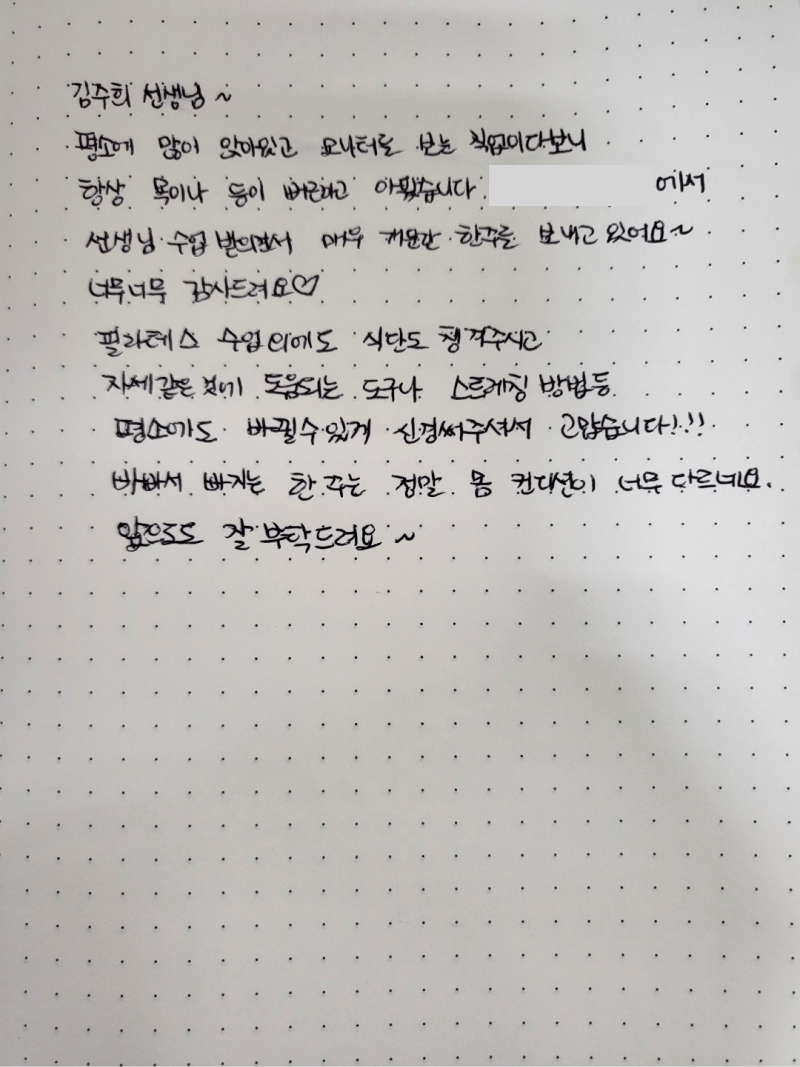 김주희 선생님~
평소에 많이 앉아있고 모니터를 보는 직업이다보니
항상 목이나 등이 뻐근하고 아팠습니다 에서
선생님 수업 받으면서 매우 개운한 한주를 보내고 있어요~
너무너무 감사드려요♡
필라테스 수업 외에도 식단도 챙겨주시고
자세같은 것에 도움되는 도구나 스트레칭 방법등
평소에도 바뀔수있게 신경써주셔서 고맙습니다!!!
바빠서 빠지는 한 주는 정말 몸 컨디션이 너무 다르네요.
앞으로도 잘 부탁드려요~